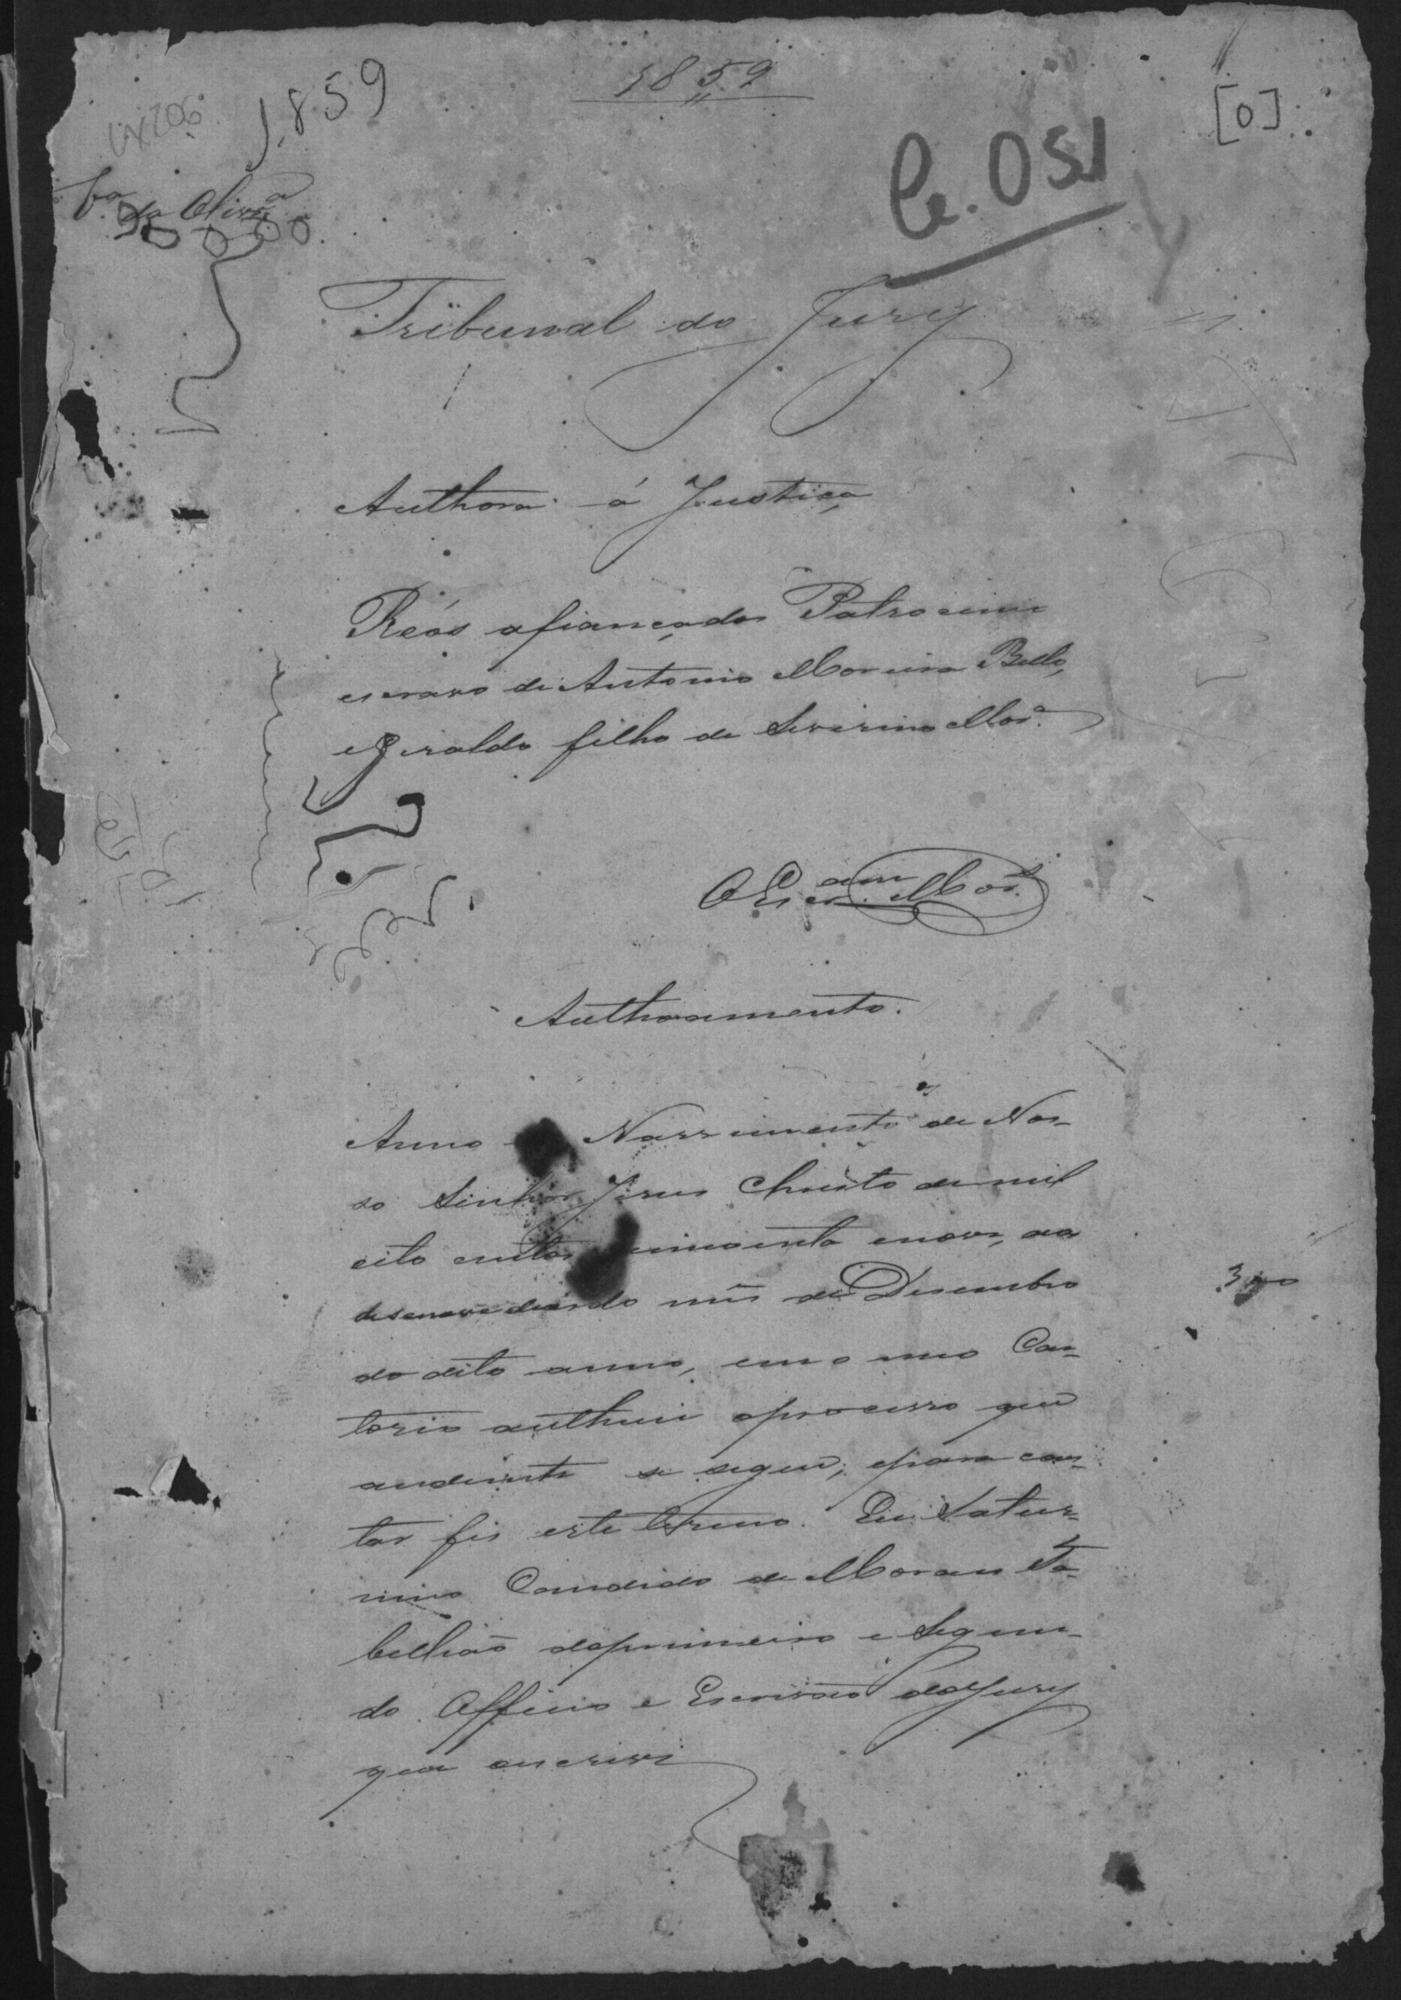 1859
1859
[0]
Ce. 051
Tribunal do Jury
Authora á Justiça
Reós afiançados Patrocinio
escravo de Antonio Moreira Bello,
e Geraldo filho de Severino Mor.ª
O Escr.am Mor.s
Authoamento.
Anno Nascimento de Nos-
so Senhor Jesus Christo de mil
oito centos cincoenta e nove, aos
desenove dias do mês de Desembro
do dito anno, em o meo Car-
torio authuei o processo que
andiente se segue; e para cons-
tar fis este termo. Eu Satur-
nino Candido de Moraes Ta-
bellião do primeiro e Segun-
do Officio e Escrivão do Jury
que escrevi
300